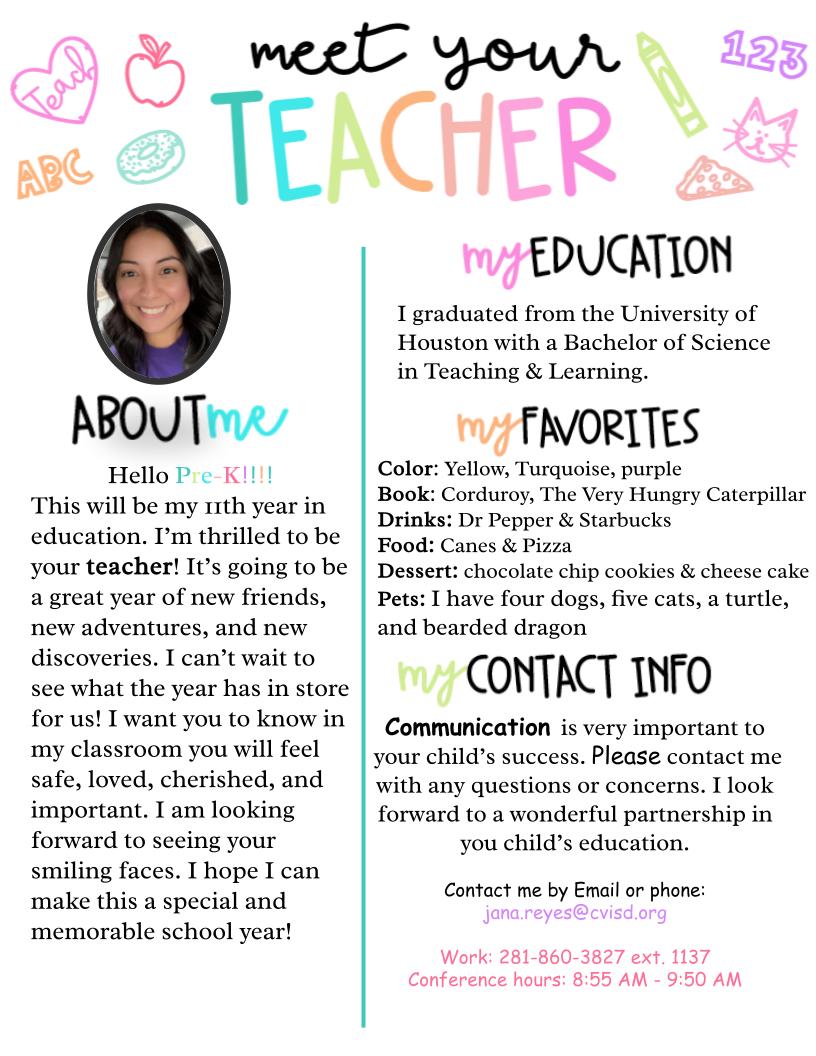 meet your
TEACHER
Teach
ABC
123
ABOUT me
Hello Pre-K!!!!
This will be my 11th year in
education. I'm thrilled to be
your teacher! It's going to be
a great year of new friends,
new adventures, and new
discoveries. I can't wait to
see what the year has in store
for us! I want you to know in
my classroom you will feel
safe, loved, cherished, and
important. I am looking
forward to seeing your
smiling faces. I hope I can
make this a special and
memorable school year!
my EDUCATION
I graduated from the University of
Houston with a Bachelor of Science
in Teaching & Learning.
my FAVORITES
Color: Yellow, Turquoise, purple
Book: Corduroy, The Very Hungry Caterpillar
Drinks: Dr Pepper & Starbucks
Food: Canes & Pizza
Dessert: chocolate chip cookies & cheese cake
Pets: I have four dogs, five cats, a turtle,
and bearded dragon
my CONTACT INFO
Communication is very important to
your child's success. Please contact me
with any questions or concerns. I look
forward to a wonderful partnership in
you child's education.
Contact me by Email or phone:
jana.reyes@cvisd.org
Work: 281-860-3827 ext. 1137
Conference hours: 8:55 AM - 9:50 AM